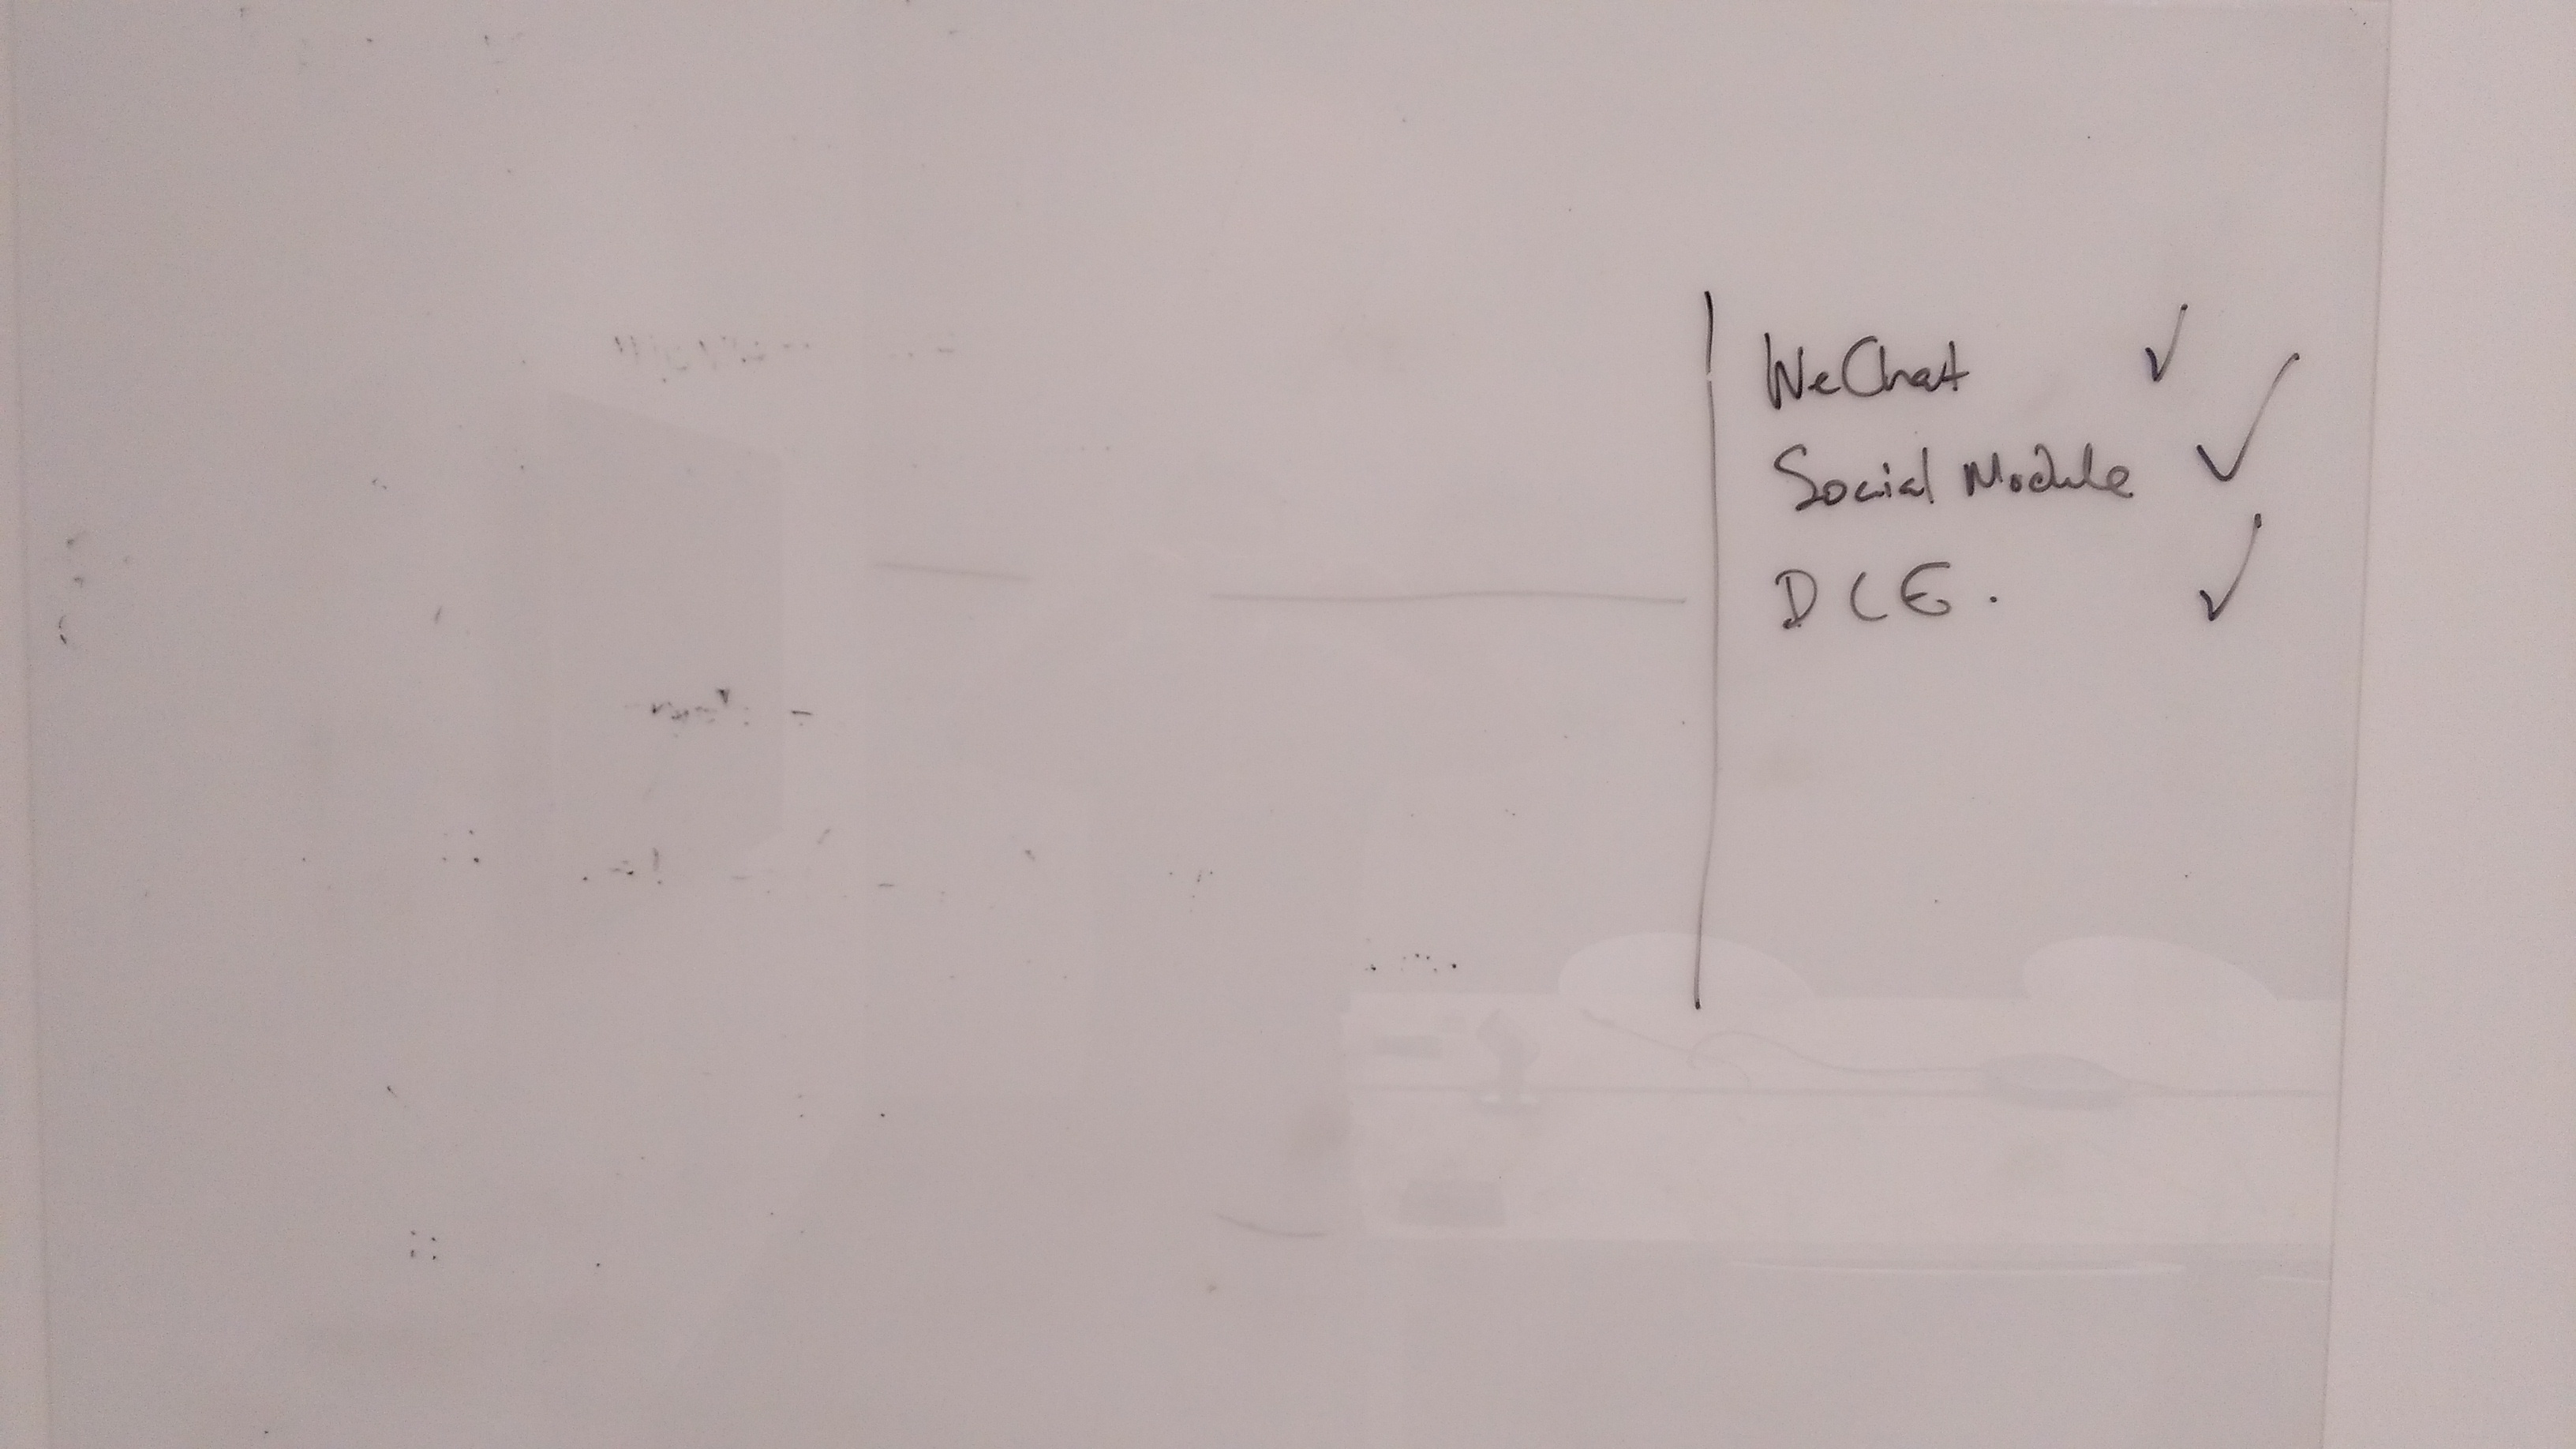 WeChat ✓
Social Module ✓
DCE. ✓